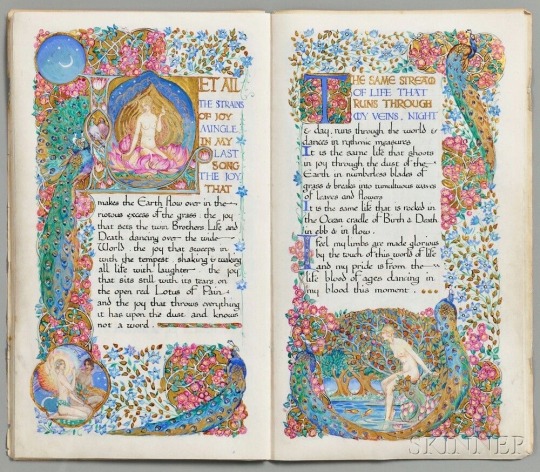 LET ALL
THE STRAINS
OF JOY
MINGLE
IN MY
LAST
SONG
THE JOY
THAT
makes the Earth flow over in the
riotous excess of the grass. the joy
that sets the twin Brothers, Life and
Death dancing over the wide
World. the joy that sweeps in
with the tempest, shaking & waking
all life with laughter. the joy
that sits still with its tears on
the open red Lotus of Pain
and the joy that throws everything
it has upon the dust and knows
not a word.
THE SAME STREAM
OF LIFE THAT
RUNS THROUGH
MY VEINS, NIGHT
& day, runs through the world &
dances in rythmic measures
It is the same life that shoots
in joy through the dust of the
Earth in numberless blades of
grass & breaks into tumultuous waves
of leaves and flowers
It is the same life that is rocked in
the Ocean cradle of Birth & Death
in ebb & in flow.
I feel my limbs are made glorious
by the touch of this world of life
and my pride is from the
life blood of ages dancing in
my blood this moment.
SKINNER